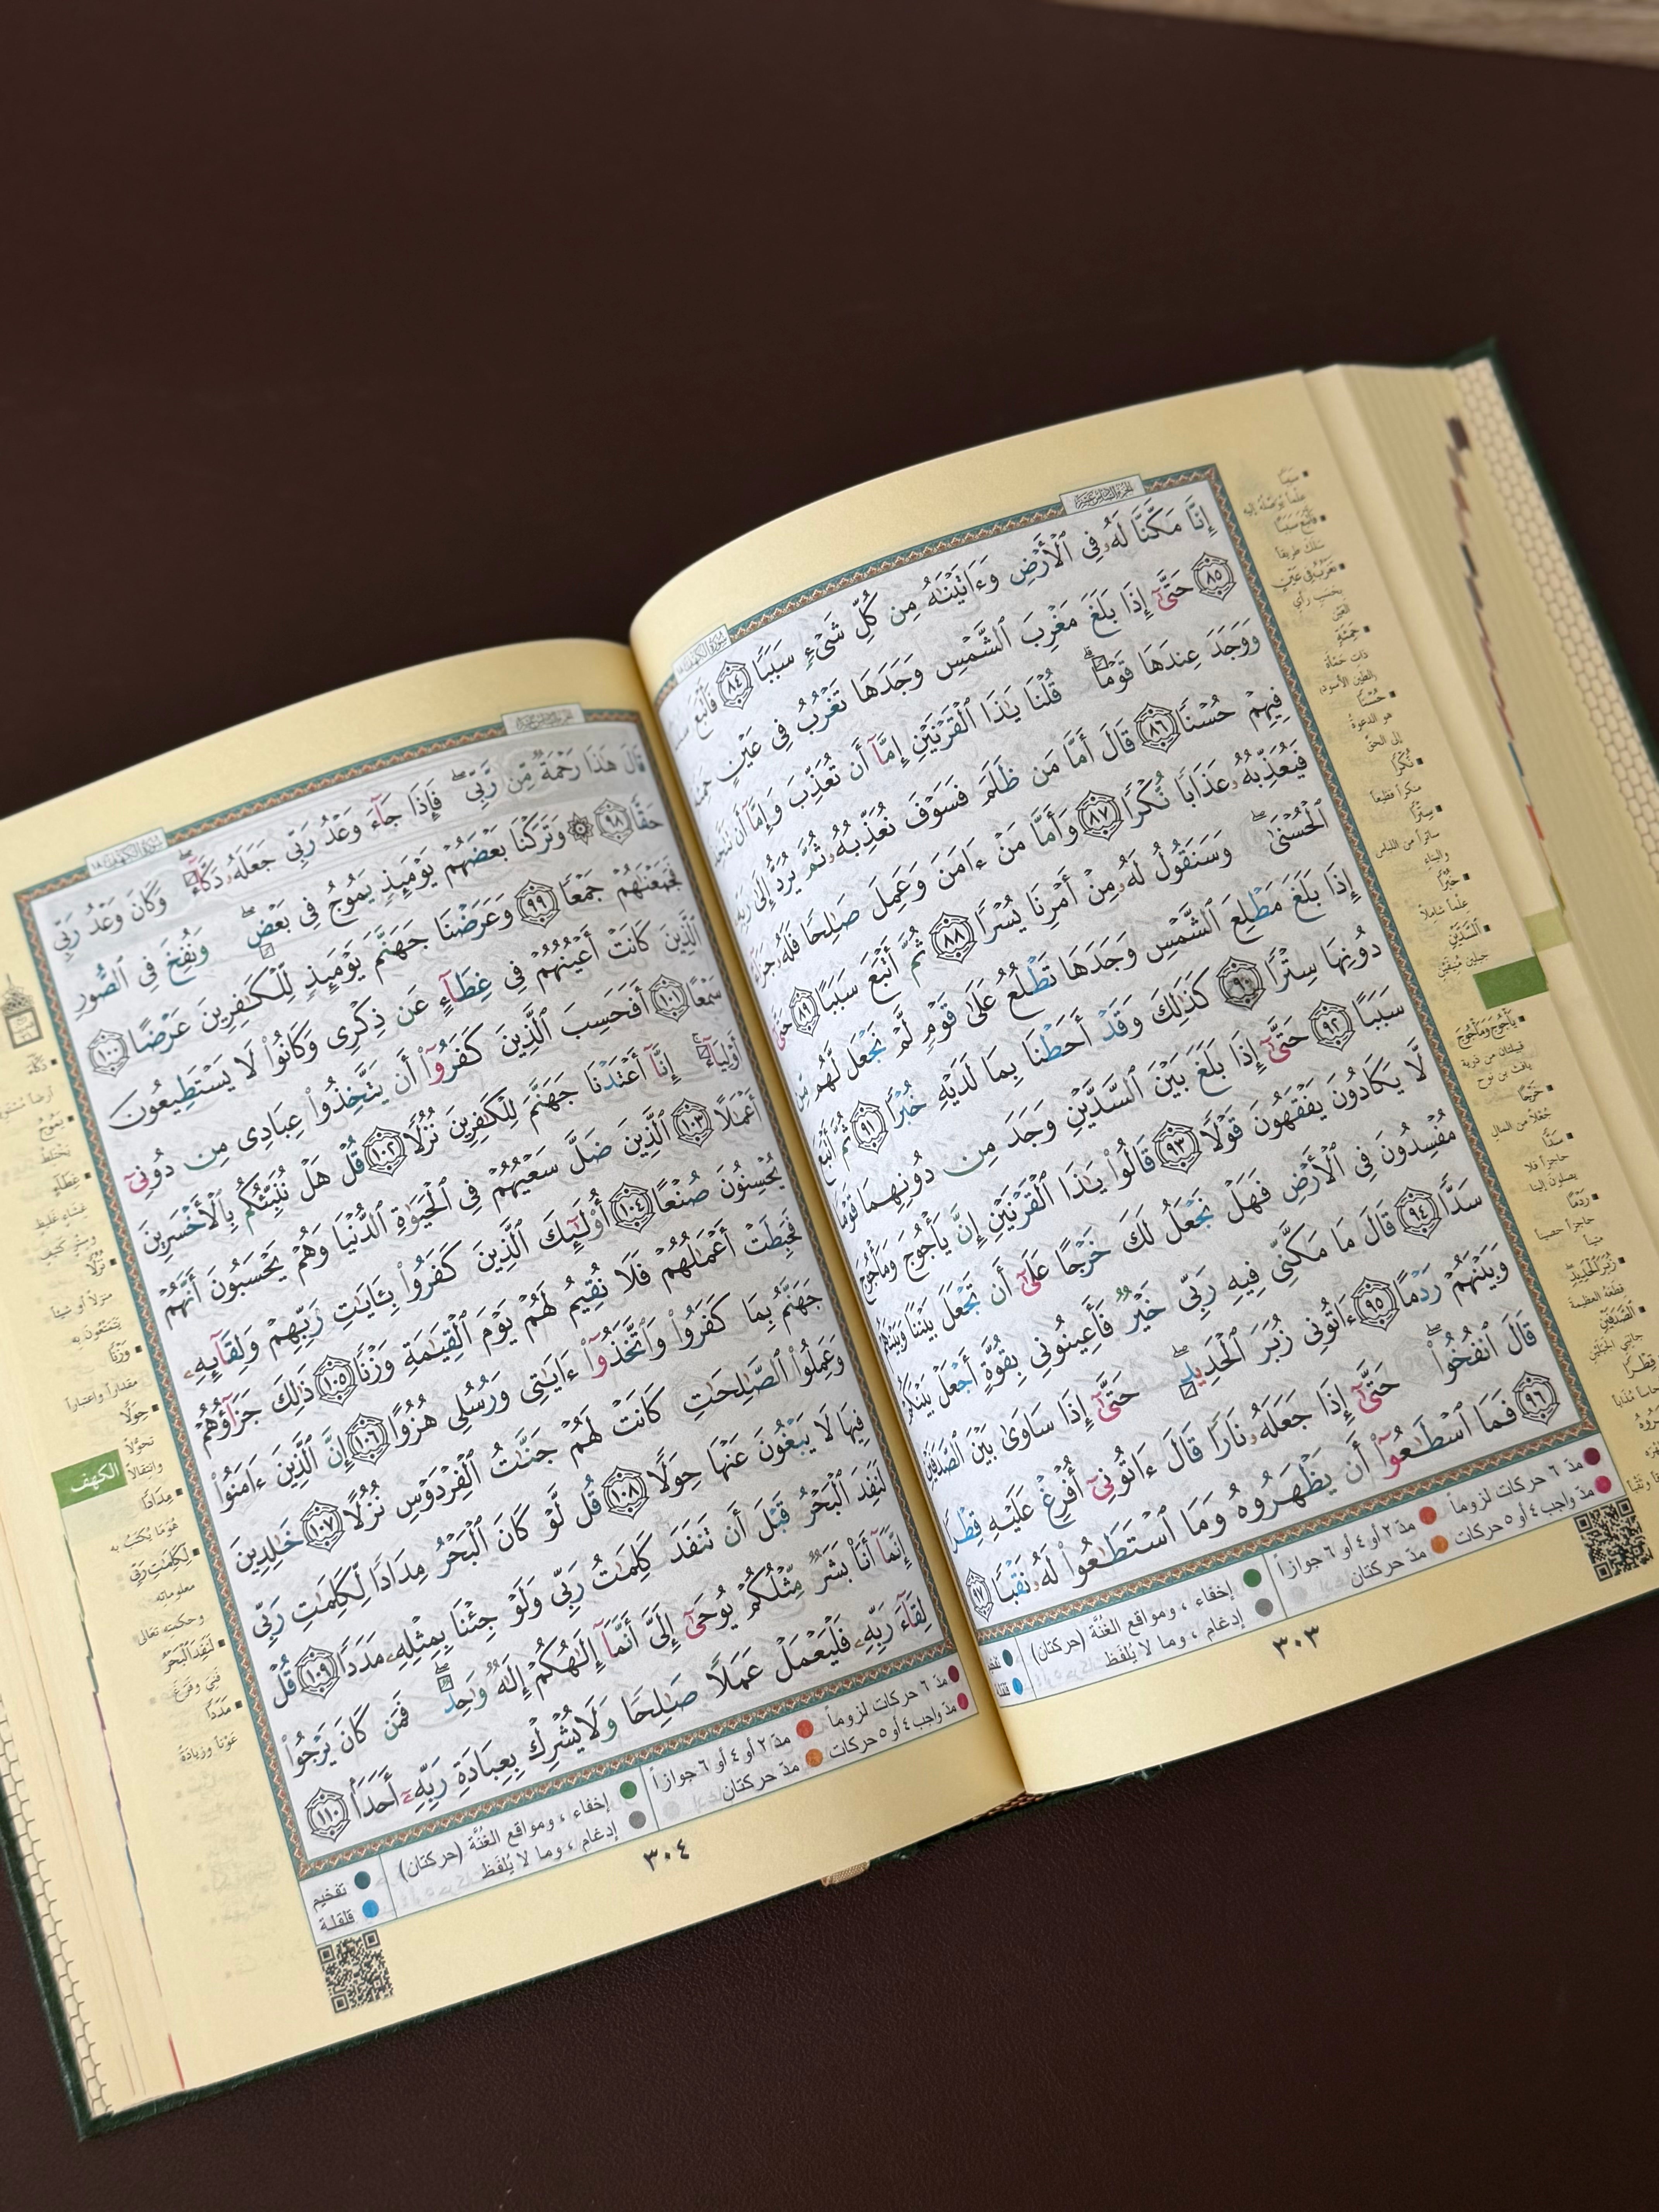 الجزء السادس عشر
سورة الكهف ١٨
إِنَّا مَكَّنَّا لَهُۥ فِى ٱلْأَرْضِ وَءَاتَيْنَٰهُ مِن كُلِّ شَىْءٍ سَبَبًا ٨٤ فَأَتْبَعَ
٨٥ حَتَّىٰٓ إِذَا بَلَغَ مَغْرِبَ ٱلشَّمْسِ وَجَدَهَا تَغْرُبُ فِى عَيْنٍ حَمِئَةٍ
وَوَجَدَ عِندَهَا قَوْمًا قُلْنَا يَٰذَا ٱلْقَرْنَيْنِ إِمَّآ أَن تُعَذِّبَ وَإِمَّآ أَن تَتَّخِذَ
فِيهِمْ حُسْنًا ٨٦ قَالَ أَمَّا مَن ظَلَمَ فَسَوْفَ نُعَذِّبُهُۥ ثُمَّ يُرَدُّ إِلَىٰ رَبِّهِۦ
فَيُعَذِّبُهُۥ عَذَابًا نُّكْرًا ٨٧ وَأَمَّا مَنْ ءَامَنَ وَعَمِلَ صَٰلِحًا فَلَهُۥ جَزَآءً
ٱلْحُسْنَىٰ وَسَنَقُولُ لَهُۥ مِنْ أَمْرِنَا يُسْرًا ٨٨ ثُمَّ أَتْبَعَ سَبَبًا ٨٩ حَتَّىٰٓ
إِذَا بَلَغَ مَطْلِعَ ٱلشَّمْسِ وَجَدَهَا تَطْلُعُ عَلَىٰ قَوْمٍ لَّمْ نَجْعَل لَّهُم مِّن
دُونِهَا سِتْرًا ٩٠ كَذَٰلِكَ وَقَدْ أَحَطْنَا بِمَا لَدَيْهِ خُبْرًا ٩١ ثُمَّ أَتْبَعَ
سَبَبًا ٩٢ حَتَّىٰٓ إِذَا بَلَغَ بَيْنَ ٱلسَّدَّيْنِ وَجَدَ مِن دُونِهِمَا قَوْمًا
لَّا يَكَادُونَ يَفْقَهُونَ قَوْلًا ٩٣ قَالُوا۟ يَٰذَا ٱلْقَرْنَيْنِ إِنَّ يَأْجُوجَ وَمَأْجُوجَ
مُفْسِدُونَ فِى ٱلْأَرْضِ فَهَلْ نَجْعَلُ لَكَ خَرْجًا عَلَىٰٓ أَن تَجْعَلَ بَيْنَنَا وَبَيْنَهُمْ
سَدًّا ٩٤ قَالَ مَا مَكَّنِّى فِيهِ رَبِّى خَيْرٌ فَأَعِينُونِى بِقُوَّةٍ أَجْعَلْ بَيْنَكُمْ
وَبَيْنَهُمْ رَدْمًا ٩٥ ءَاتُونِى زُبَرَ ٱلْحَدِيدِ حَتَّىٰٓ إِذَا سَاوَىٰ بَيْنَ ٱلصَّدَفَيْنِ
قَالَ ٱنفُخُوا۟ حَتَّىٰٓ إِذَا جَعَلَهُۥ نَارًا قَالَ ءَاتُونِىٓ أُفْرِغْ عَلَيْهِ قِطْرًا
٩٦ فَمَا ٱسْطَٰعُوٓا۟ أَن يَظْهَرُوهُ وَمَا ٱسْتَطَٰعُوا۟ لَهُۥ نَقْبًا ٩٧
سَبَبًا
علماً يوصله إليه
فَأَتْبَعَ سَبَبًا
سلك طريقاً
تَغْرُبُ فِى عَيْنٍ
بحسب رأي
العين
حَمِئَةٍ
ذات حمأة
(الطين الأسود)
حُسْنًا
هو الدعوة
إلى الحق
نُّكْرًا
منكراً فظيعاً
سِتْرًا
ساتراً من اللباس
والبناء
خُبْرًا
علماً شاملاً
ٱلسَّدَّيْنِ
جبلين منيفين
يَأْجُوجَ وَمَأْجُوجَ
قبيلتان من ذرية
يافث بن نوح
خَرْجًا
جُعلاً من المال
سَدًّا
حاجزاً فلا
يصلون إلينا
رَدْمًا
حاجزاً حصيناً
متيناً
زُبَرَ ٱلْحَدِيدِ
قطعه العظيمة
ٱلصَّدَفَيْنِ
جانبي الجبلين
مدّ ٦ حركات لزوماً مدّ ٢ أو ٤ أو ٦ جوازاً إخفاء، ومواقع الغُنَّة (حركتان)
مدّ واجب ٤ أو ٥ حركات مدّ حركتان إدغام، وما لا يُلفَظ
٣٠٣
الجزء السادس عشر
سورة الكهف ١٨
قَالَ هَٰذَا رَحْمَةٌ مِّن رَّبِّى فَإِذَا جَآءَ وَعْدُ رَبِّى جَعَلَهُۥ دَكَّآءَ وَكَانَ وَعْدُ رَبِّى
حَقًّا ٩٨ وَتَرَكْنَا بَعْضَهُمْ يَوْمَئِذٍ يَمُوجُ فِى بَعْضٍ وَنُفِخَ فِى ٱلصُّورِ
فَجَمَعْنَٰهُمْ جَمْعًا ٩٩ وَعَرَضْنَا جَهَنَّمَ يَوْمَئِذٍ لِّلْكَٰفِرِينَ عَرْضًا ١٠٠
ٱلَّذِينَ كَانَتْ أَعْيُنُهُمْ فِى غِطَآءٍ عَن ذِكْرِى وَكَانُوا۟ لَا يَسْتَطِيعُونَ
سَمْعًا ١٠١ أَفَحَسِبَ ٱلَّذِينَ كَفَرُوٓا۟ أَن يَتَّخِذُوا۟ عِبَادِى مِن دُونِىٓ
أَوْلِيَآءَ إِنَّآ أَعْتَدْنَا جَهَنَّمَ لِلْكَٰفِرِينَ نُزُلًا ١٠٢ قُلْ هَلْ نُنَبِّئُكُم بِٱلْأَخْسَرِينَ
أَعْمَٰلًا ١٠٣ ٱلَّذِينَ ضَلَّ سَعْيُهُمْ فِى ٱلْحَيَوٰةِ ٱلدُّنْيَا وَهُمْ يَحْسَبُونَ أَنَّهُمْ
يُحْسِنُونَ صُنْعًا ١٠٤ أُو۟لَٰٓئِكَ ٱلَّذِينَ كَفَرُوا۟ بِـَٔايَٰتِ رَبِّهِمْ وَلِقَآئِهِۦ
فَحَبِطَتْ أَعْمَٰلُهُمْ فَلَا نُقِيمُ لَهُمْ يَوْمَ ٱلْقِيَٰمَةِ وَزْنًا ١٠٥ ذَٰلِكَ جَزَآؤُهُمْ
جَهَنَّمُ بِمَا كَفَرُوا۟ وَٱتَّخَذُوٓا۟ ءَايَٰتِى وَرُسُلِى هُزُوًا ١٠٦ إِنَّ ٱلَّذِينَ ءَامَنُوا۟
وَعَمِلُوا۟ ٱلصَّٰلِحَٰتِ كَانَتْ لَهُمْ جَنَّٰتُ ٱلْفِرْدَوْسِ نُزُلًا ١٠٧ خَٰلِدِينَ
فِيهَا لَا يَبْغُونَ عَنْهَا حِوَلًا ١٠٨ قُل لَّوْ كَانَ ٱلْبَحْرُ مِدَادًا لِّكَلِمَٰتِ رَبِّى
لَنَفِدَ ٱلْبَحْرُ قَبْلَ أَن تَنفَدَ كَلِمَٰتُ رَبِّى وَلَوْ جِئْنَا بِمِثْلِهِۦ مَدَدًا ١٠٩ قُلْ
إِنَّمَآ أَنَا۠ بَشَرٌ مِّثْلُكُمْ يُوحَىٰٓ إِلَىَّ أَنَّمَآ إِلَٰهُكُمْ إِلَٰهٌ وَٰحِدٌ فَمَن كَانَ يَرْجُوا۟
لِقَآءَ رَبِّهِۦ فَلْيَعْمَلْ عَمَلًا صَٰلِحًا وَلَا يُشْرِكْ بِعِبَادَةِ رَبِّهِۦٓ أَحَدًۢا ١١٠
دَكَّآءَ
يَمُوجُ
يختلط
غِطَآءٍ
غشاء غليظ
وستر كثيف
نُزُلًا
منزلاً أو شيئاً
يتمتعون به
وَزْنًا
مقداراً واعتباراً
حِوَلًا
تحولاً
وانتقالاً
الكهف
مِدَادًا
هو ما يكتب به
لِّكَلِمَٰتِ رَبِّى
معلوماته
وحكمته تعالى
لَنَفِدَ ٱلْبَحْرُ
فني وفرغ
مَدَدًا
عوناً وزيادة
مدّ ٦ حركات لزوماً مدّ ٢ أو ٤ أو ٦ جوازاً إخفاء، ومواقع الغُنَّة (حركتان) تفخيم
مدّ واجب ٤ أو ٥ حركات مدّ حركتان إدغام، وما لا يُلفَظ قلقلة
٣٠٤